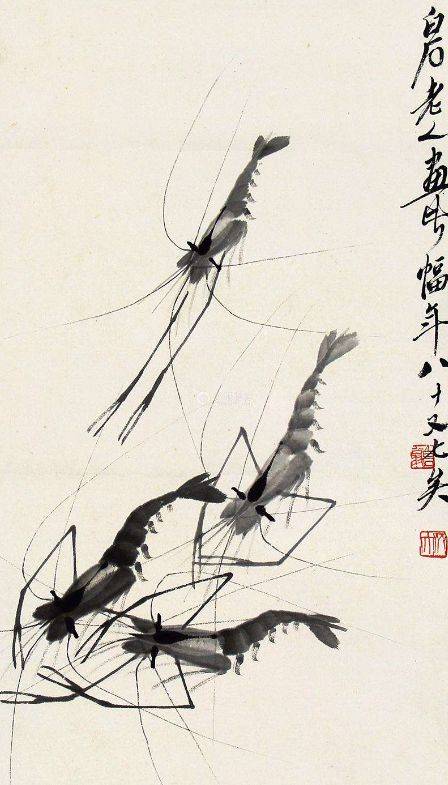 白石老人画此幅年八十又七矣